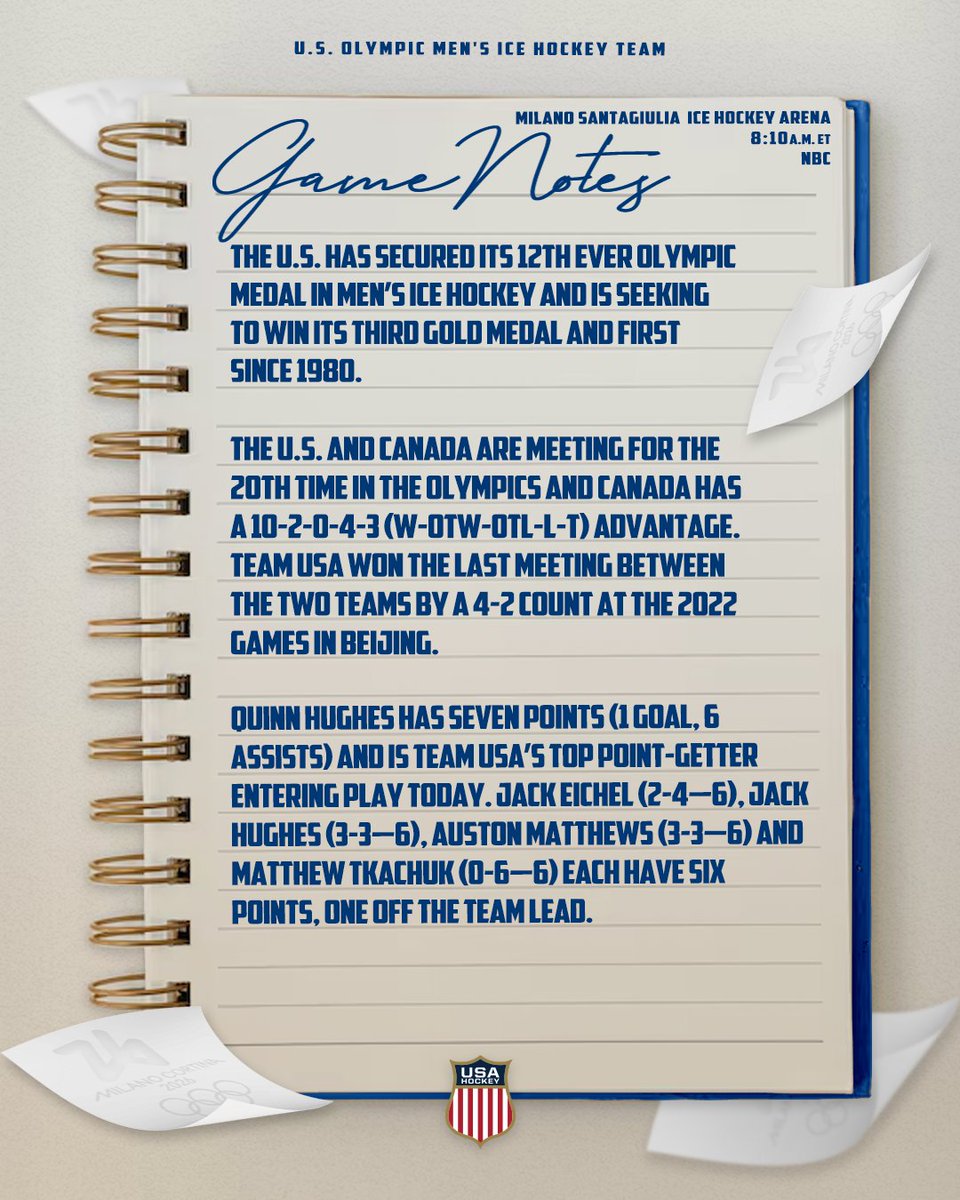 U.S. OLYMPIC MEN'S ICE HOCKEY TEAM
MILANO SANTAGIULIA ICE HOCKEY ARENA
8:10 A.M. ET
NBC
Game Notes
THE U.S. HAS SECURED ITS 12TH EVER OLYMPIC
MEDAL IN MEN'S ICE HOCKEY AND IS SEEKING
TO WIN ITS THIRD GOLD MEDAL AND FIRST
SINCE 1980.
THE U.S. AND CANADA ARE MEETING FOR THE
20TH TIME IN THE OLYMPICS AND CANADA HAS
A 10-2-0-4-3 (W-OTW-OTL-L-T) ADVANTAGE.
TEAM USA WON THE LAST MEETING BETWEEN
THE TWO TEAMS BY A 4-2 COUNT AT THE 2022
GAMES IN BEIJING.
QUINN HUGHES HAS SEVEN POINTS (1 GOAL, 6
ASSISTS) AND IS TEAM USA'S TOP POINT-GETTER
ENTERING PLAY TODAY. JACK EICHEL (2-4—6), JACK
HUGHES (3-3—6), AUSTON MATTHEWS (3-3—6) AND
MATTHEW TKACHUK (0-6—6) EACH HAVE SIX
POINTS, ONE OFF THE TEAM LEAD.
MILANO CORTINA
2026
USA
HOCKEY